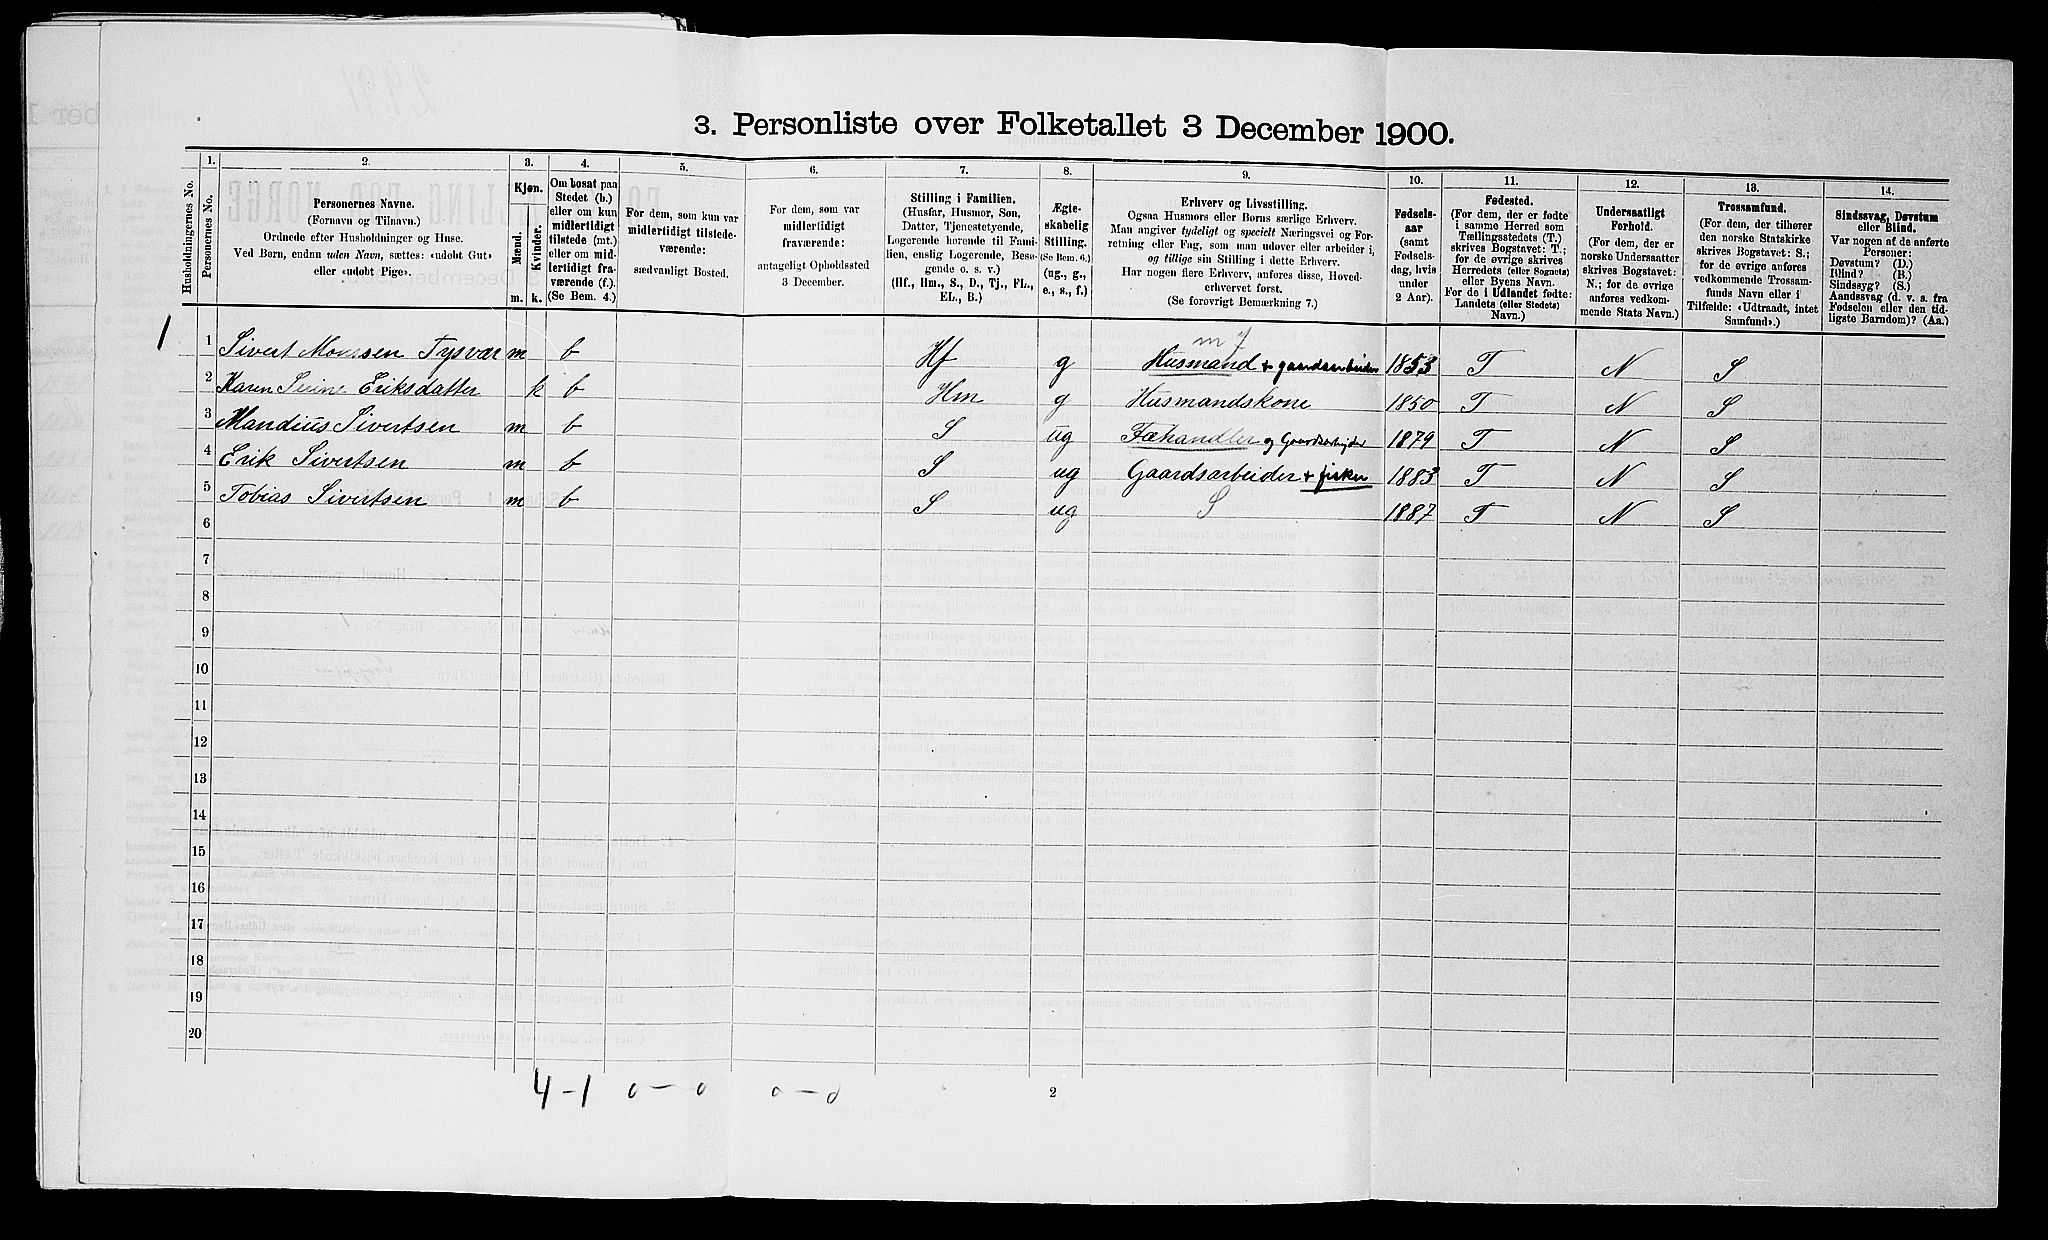 3. Personliste over Folketallet 3 December 1900.
Husholdningernes No.
1.
Personernes No.
2.
Personernes Navne.
(Fornavn og Tilnavn.)
Ordnede efter Husholdninger og Huse.
Ved Børn, endnu uden Navn, sættes: «udøbt Gut»
eller «udøbt Pige».
3.
Kjøn.
Mænd.
Kvinder.
m.
k.
4.
Om bosat paa
Stedet (b.)
eller om kun
midlertidigt
tilstede (mt.)
eller om mid-
lertidigt fra-
værende (f.)
(Se Bem. 4.)
5.
For dem, som kun var
midlertidigt tilstede-
værende:
sædvanligt Bosted.
6.
For dem, som var
midlertidigt
fraværende:
antageligt Opholdssted
3 December.
7.
Stilling i Familien.
(Husfar, Husmor, Søn,
Datter, Tjenestetyende,
Logerende hørende til Fami-
lien, enslig Logerende, Besø-
gende o. s. v.)
(Hf., Hm., S., D., Tj., FL.,
EL., B.)
8.
Ægte-
skabelig
Stilling.
(Se Bem. 6.)
(ug., g.,
e., s., f.)
9.
Erhverv og Livsstilling.
Ogsaa Husmors eller Børns særlige Erhverv.
Man angiver tydeligt og specielt Næringsvei og For-
retning eller Fag, som man udøver eller arbeider i,
og tillige sin Stilling i dette Erhverv.
Har nogen flere Erhverv, anføres disse, Hoved-
erhvervet først.
(Se forøvrigt Bemærkning 7.)
10.
Fødsels-
aar
(samt
Fødsels-
dag, hvis
under
2 Aar).
11.
Fødested.
(For dem, der er fødte
i samme Herred som
Tællingsstedets (T.)
skrives Bogstavet: T.;
for de øvrige skrives
Herredets (eller Sognets)
eller Byens Navn.
For de i Udlandet fødte:
Landets (eller Stedets)
Navn.)
12.
Undersaatligt
Forhold.
(For dem, der er
norske Undersaatter
skrives Bogstavet:
N.; for de øvrige
anføres vedkom-
mende Stats Navn.)
13.
Trossamfund.
(For dem, der tilhører
den norske Statskirke
skrives Bogstavet: S.;
for de øvrige anføres
vedkommende Trossam-
funds Navn eller i
Tilfælde: «Udtraadt, intet
Samfund».)
14.
Sindssvag, Døvstum
eller Blind.
Var nogen af de anførte
Personer:
Døvstum? (D.)
Blind? (B.)
Sindssyg? (S.)
Aandssvag (d. v. s. fra
Fødselen eller den tid-
ligste Barndom)? (Aa.)
m 7
1 1 Sivert Monsen Tysvær m b Hf g Husmand + gaardsarbeider 1853 T N S
2 Karen Serine Eriksdatter k b Hm g Husmandskone 1850 T N S
3 Mandius Sivertsen m b S ug Fæhandler og Gaardsarbejder 1879 T N S
4 Erik Sivertsen m b S ug Gaardsarbeider + fisker 1883 T N S
5 Tobias Sivertsen m b S ug S 1887 T N S
6
7
8
9
10
11
12
13
14
15
16
17
18
19
20
4-1 0-0 0-0
2